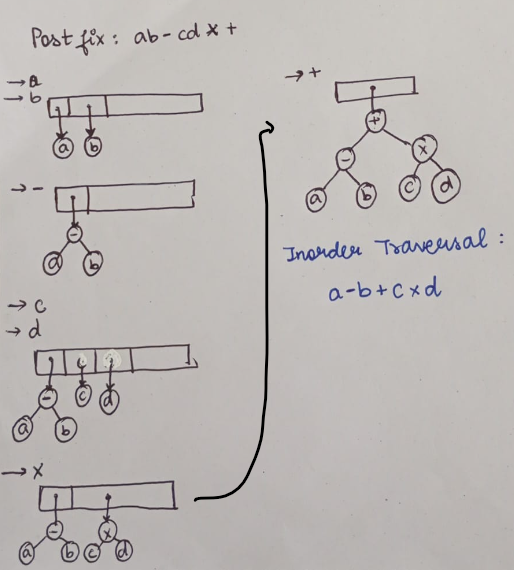 Postfix: ab-cd×+
→ a
→ b
a b
→ -
-
a b
→ c
→ d
-
c d
a b
→ ×
- ×
a b c d
→ +
+
- ×
a b c d
Inorder Traversal:
a-b+c×d